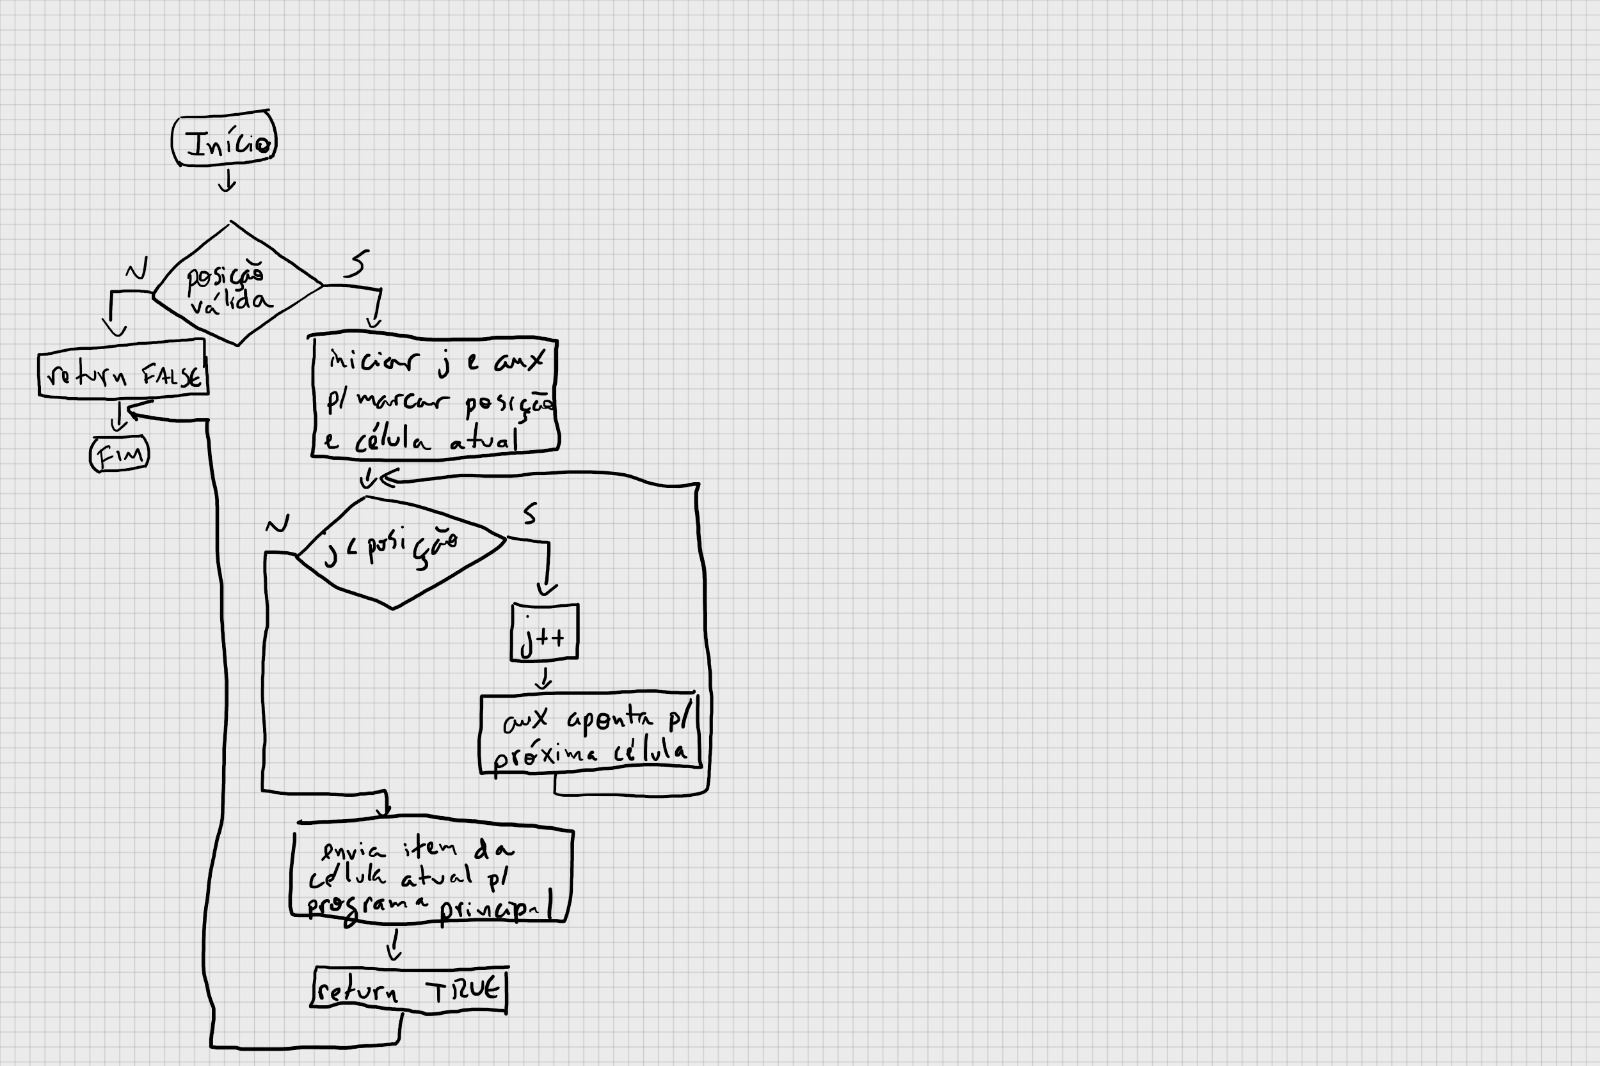 Início
posição
válida
N
S
return FALSE
FIM
iniciar j e aux
p/ marcar posição
e célula atual
j < posição
N
S
j++
aux aponta p/
próxima célula
envia item da
célula atual p/
programa principal
return TRUE